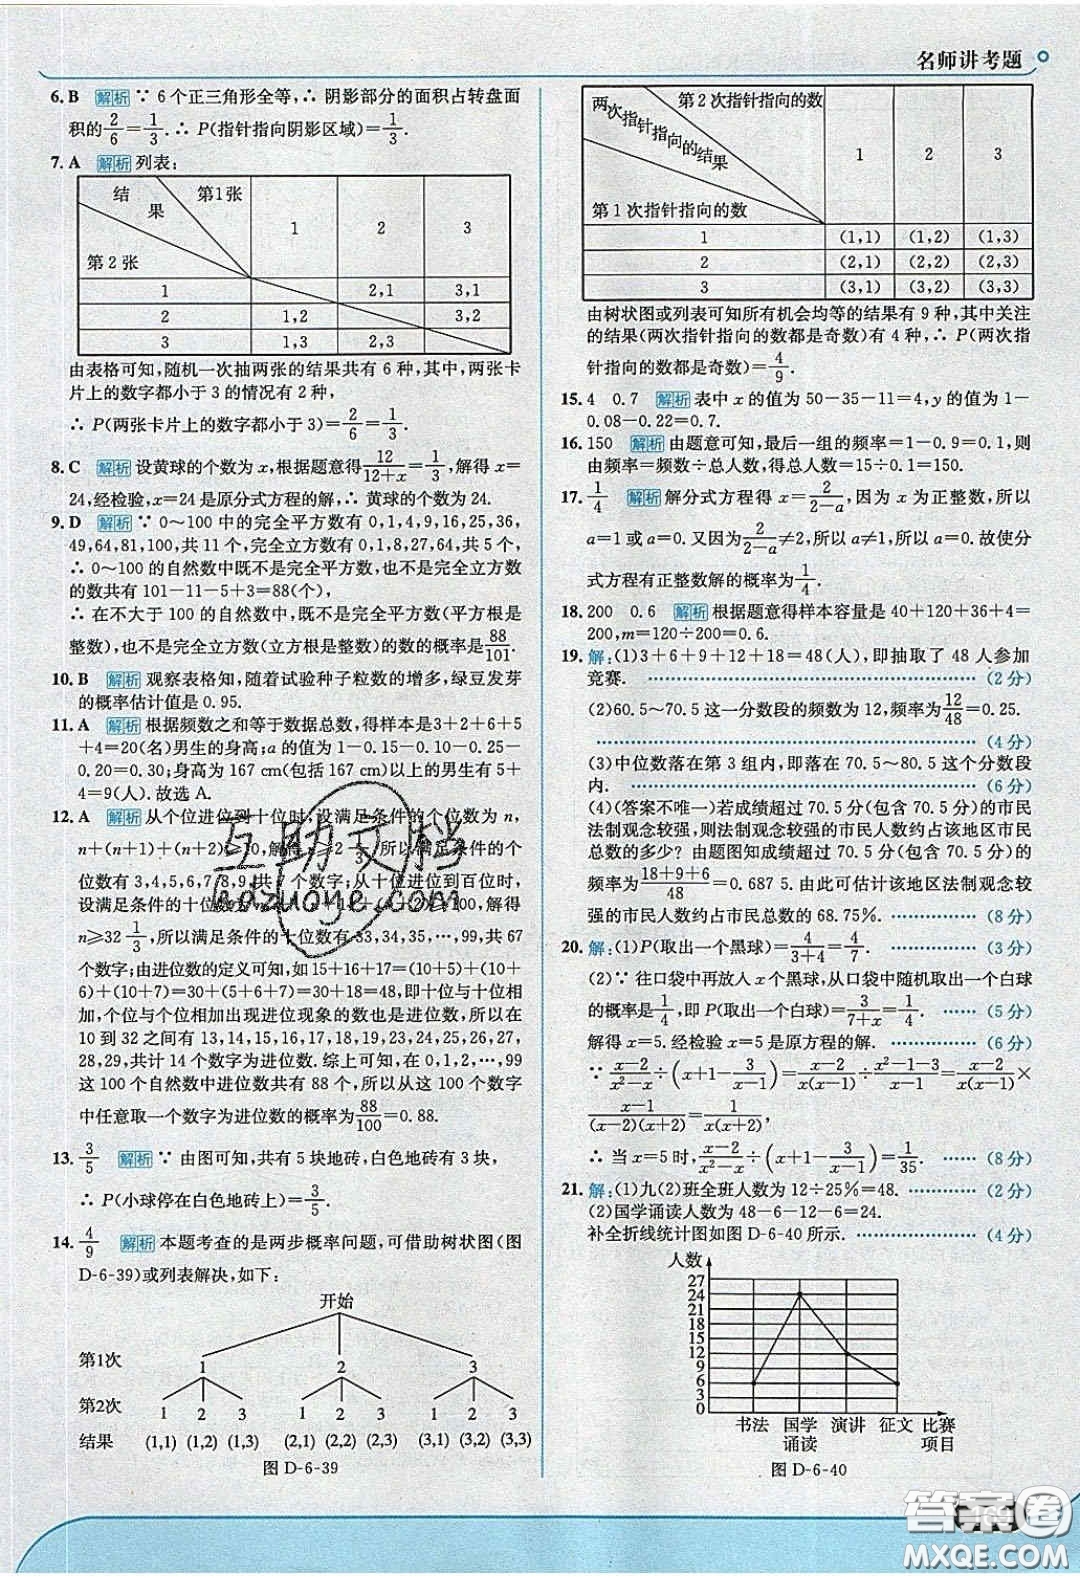 名师讲考题
6. B 解析 ∵ 6 个正三角形全等,∴ 阴影部分的面积占转盘面
积的2/6=1/3.∴ P(指针指向阴影区域)=1/3.
7. A 解析 列表:
结果 第1张 1 2 3
第 2 张
1 2,1 3,1
2 1,2 3,2
3 1,3 2,3
由表格可知,随机一次抽两张的结果共有 6 种,其中,两张卡
片上的数字都小于 3 的情况有 2 种,
∴ P(两张卡片上的数字都小于 3)=2/6=1/3.
8. C 解析 设黄球的个数为 x,根据题意得12/(12+x)=1/3,解得 x=
24,经检验,x=24 是原分式方程的解,∴ 黄球的个数为 24.
9. D 解析 ∵ 0～100 中的完全平方数有 0,1,4,9,16,25,36,
49,64,81,100,共 11 个,完全立方数有 0,1,8,27,64,共 5 个,
∴ 0～100 的自然数中既不是完全平方数,也不是完全立方数
的数共有 101-11-5+3=88(个),
∴ 在不大于 100 的自然数中,既不是完全平方数(平方根是
整数),也不是完全立方数(立方根是整数)的数的概率是88/101.
10. B 解析 观察表格知,随着试验种子粒数的增多,绿豆发芽
的概率估计值是 0.95.
11. A 解析 根据频数之和等于数据总数,得样本是3+2+6+5
+4=20(名)男生的身高;a 的值为 1-0.15-0.10-0.25-
0.20=0.30;身高为 167 cm(包括 167 cm)以上的男生有 5+
4=9(人).故选 A.
12. A 解析 从个位进位到十位时,设满足条件的个位数为 n,
n+(n+1)+(n+2)≥10,解得 n≥2 1/3,所以满足条件的个
位数有 3,4,5,6,7,8,9,共 7 个数字;从十位进位到百位时,
设满足条件的十位数为 n,n+n+1+n+2≥100,解得
n≥32 1/3,所以满足条件的十位数有 33,34,35,⋯,99,共 67
个数字;由进位数的定义可知,如 15+16+17=(10+5)+(10+
6)+(10+7)=30+(5+6+7)=30+18=48,即十位与十位相
加,个位与个位相加出现进位现象的数也是进位数,所以在
10 到 32 之间有 13,14,15,16,17,18,19,23,24,25,26,27,
28,29,共计 14 个数字为进位数.综上可知,在 0,1,2,⋯,99
这 100 个自然数中进位数共有 88 个,所以从这 100 个数字
中任意取一个数字为进位数的概率为88/100=0.88.
13. 3/5 解析 ∵ 由图可知,共有 5 块地砖,白色地砖有 3 块,
∴ P(小球停在白色地砖上)=3/5.
14. 4/9 解析 本题考查的是两步概率问题,可借助树状图(图
D-6-39)或列表解决,如下:
开始
第1次 1 2 3
第2次 1 2 3 1 2 3 1 2 3
结果 (1,1) (1,2) (1,3) (2,1) (2,2) (2,3) (3,1) (3,2) (3,3)
图 D-6-39
两次指针指向的结果 第 2 次指针指向的数 1 2 3
第 1 次指针指向的数
1 (1,1) (1,2) (1,3)
2 (2,1) (2,2) (2,3)
3 (3,1) (3,2) (3,3)
由树状图或列表可知所有机会均等的结果有 9 种,其中关注
的结果(两次指针指向的数都是奇数)有 4 种,∴ P(两次指
针指向的数都是奇数)=4/9.
15. 4 0.7 解析 表中 x 的值为 50-35-11=4,y 的值为 1-
0.08-0.22=0.7.
16. 150 解析 由题意可知,最后一组的频率=1-0.9=0.1,则
由频率=频数÷总人数,得总人数=15÷0.1=150.
17. 1/4 解析 解分式方程得 x=2/(2-a),因为 x 为正整数,所以
a=1 或 a=0.又因为2/(2-a)≠2,所以 a≠1,所以 a=0.故使分
式方程有正整数解的概率为1/4.
18. 200 0.6 解析 根据题意得样本容量是 40+120+36+4=
200,m=120÷200=0.6.
19. 解:(1)3+6+9+12+18=48(人),即抽取了 48 人参加
竞赛. (2 分)
(2)60.5～70.5 这一分数段的频数为 12,频率为12/48=0.25.
(4 分)
(3)中位数落在第 3 组内,即落在 70.5～80.5 这个分数段
内. (6 分)
(4)(答案不唯一)若成绩超过 70.5 分(包含 70.5 分)的市民
法制观念较强,则法制观念较强的市民人数约占该地区市民
总数的多少? 由题图知成绩超过 70.5 分(包含 70.5 分)的
频率为(18+9+6)/48=0.687 5.由此可估计该地区法制观念较
强的市民人数约占市民总数的 68.75%. (8 分)
20. 解:(1)P(取出一个黑球)=4/(3+4)=4/7. (3 分)
(2)∵ 往口袋中再放人 x 个黑球,从口袋中随机取出一个白球
的概率是1/4,即 P(取出一个白球)=3/(7+x)=1/4. (5 分)
解得 x=5.经检验 x=5 是原方程的解. (6 分)
∵ (x-2)/(x²-x)÷(x+1-3/(x-1))=(x-2)/(x(x-1))÷(x²-4)/(x-1)=(x-2)/(x(x-1))×
(x-1)/((x-2)(x+2))=1/(x(x+2)),
∴ 当 x=5 时,(x-2)/(x²-x)÷(x+1-3/(x-1))=1/35. (8 分)
21. 解:(1)九(2)班全班人数为 12÷25%=48. (2 分)
(2)国学诵读人数为 48-6-12-6=24.
补全折线统计图如图 D-6-40 所示. (4 分)
人数
27
24
21
18
15
12
9
6
3
0
书法 国学诵读 演讲 征文 比赛项目
图 D-6-40
互助文档
hdzuoye.com
答案圈
MXQE.COM